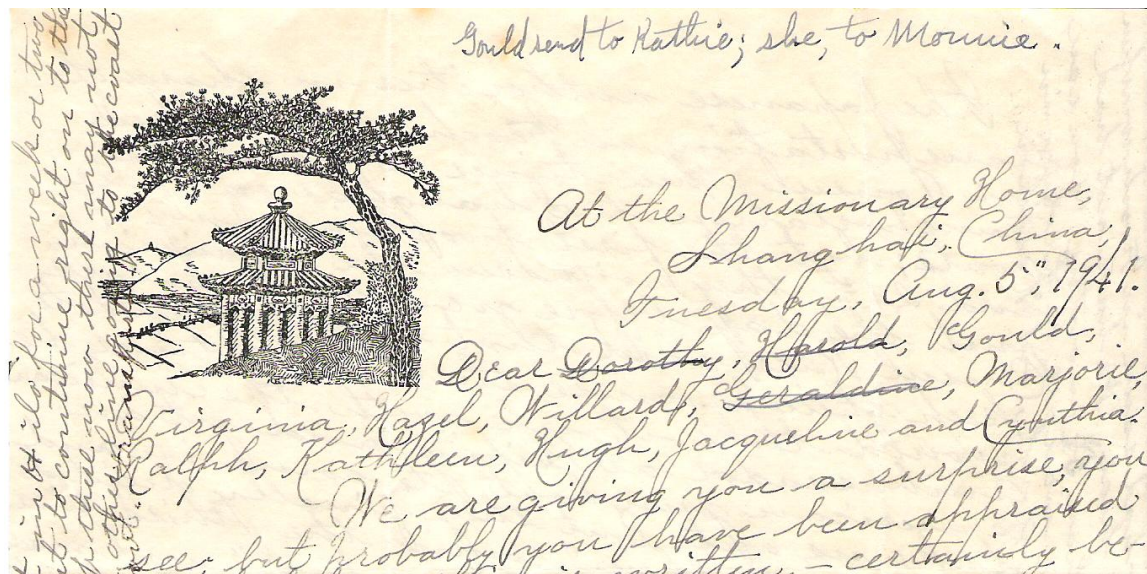 Gould send to Kathie; she, to Monnie.
At the Missionary Home,
Shanghai, China,
Tuesday, Aug. 5", 1941.
Dear Dorothy, Harold, Gould,
Virginia, Hazel, Willard, Geraldine, Marjorie,
Ralph, Kathleen, Hugh, Jacqueline and Cynthia.
We are giving you a surprise, you
see, but probably you have been appraised
written, – certainly be-
in Hilo for a week or two
to continue right on to the
these now this may not
other line going to the coast